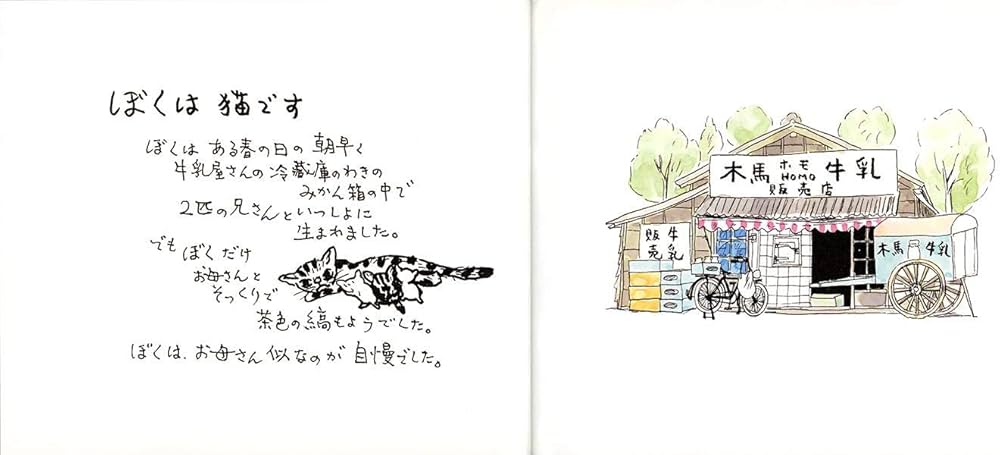 ぼくは 猫です
ぼくは ある春の日の 朝早く
牛乳屋さんの 冷蔵庫のわきの
みかん箱の中で
2匹の兄さんと いっしょに
生まれました。
でも ぼくだけ
お母さんと
そっくりで
茶色の縞もようでした。
ぼくは、お母さん似なのが 自慢でした。
木馬 ホモ 牛乳
HOMO
販売店
牛乳
販売
木馬 牛乳